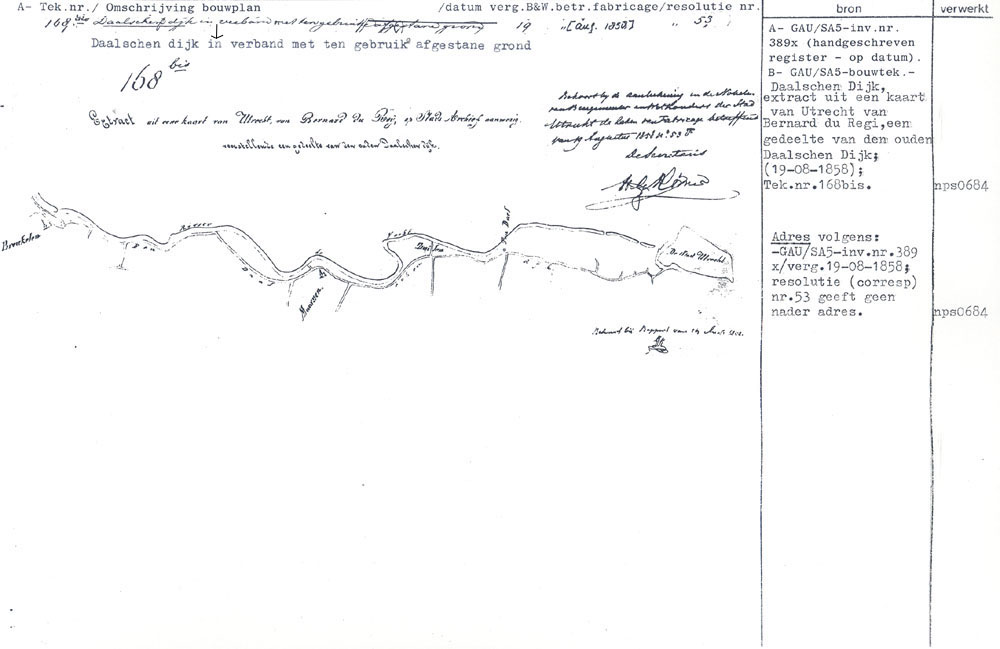 A- Tek.nr./ Omschrijving bouwplan /datum verg.B&W.betr.fabricage/resolutie nr.
bron
verwerkt
168 bis Daalschen dijk in verband met ten gebruik afgestane grond 19 „ [aug. 1858] „ 53
Daalschen dijk in verband met ten gebruik afgestane grond
168 bis
Extract uit eene kaart van Utrecht, van Bernard du Roij, op Stads Archief aanwezig.
voorstellende een gedeelte van den ouden Daalschen dijk.
Behoort bij de aanteekening in de Notulen
van Burgemeester en Wethouders der Stad
Utrecht de zaken van Fabricage betreffende
van 19 Augustus 1858 no. 53
De Secretaris
Breukelen
Maarssen
De Stad Utrecht
Behoort bij Rapport van 14
A- GAU/SA5-inv.nr.
389x (handgeschreven
register - op datum).
B- GAU/SA5-bouwtek.-
Daalschen Dijk,
extract uit een kaart
van Utrecht van
Bernard du Regi,een
gedeelte van den ouden
Daalschen Dijk;
(19-08-1858);
Tek.nr.168bis.
nps0684
Adres volgens:
-GAU/SA5-inv.nr.389
x/verg.19-08-1858;
resolutie (corresp)
nr.53 geeft geen
nader adres.
nps0684